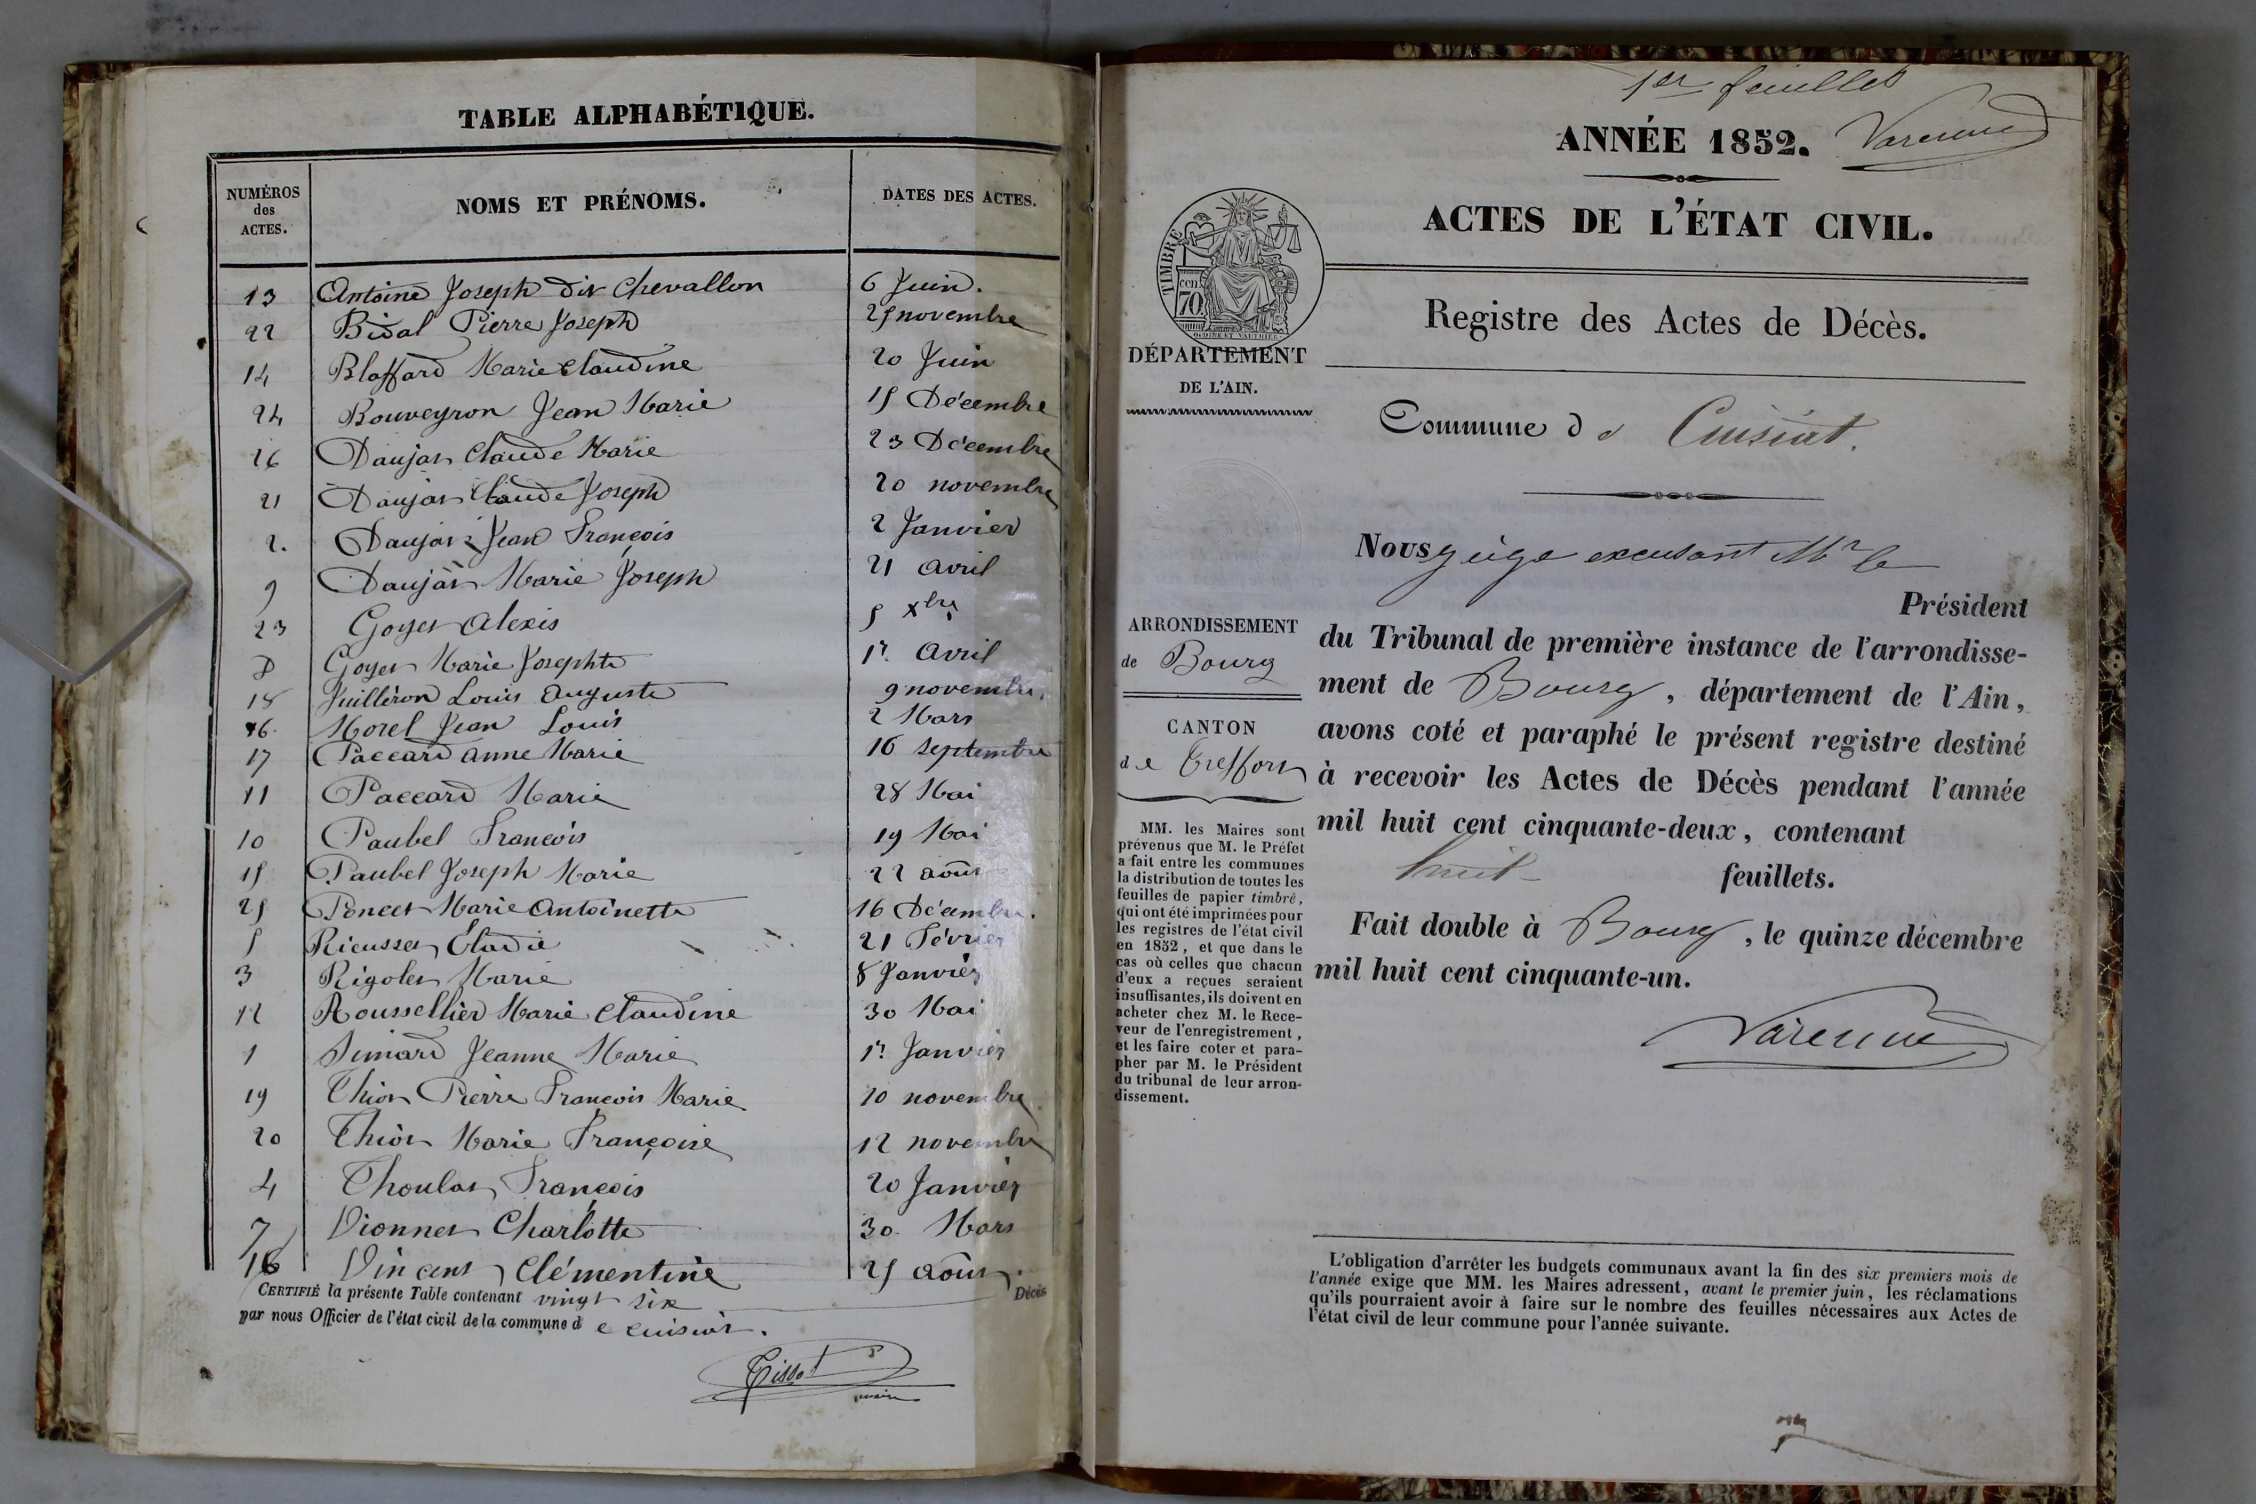 TABLE ALPHABÉTIQUE.
NUMÉROS des ACTES.
NOMS ET PRÉNOMS.
DATES DES ACTES.
13 Antoine Joseph dit Chevallon 6 Juin.
22 Bidal Pierre Joseph 25 novembre
14 Blaffard Marie Claudine 20 Juin
24 Bouveyron Jean Marie 15 Décembre
26 Daujat Claude Marie 23 Décembre
21 Daujat Claude Joseph 20 novembre
2. Daujat Jean François 2 Janvier
9 Daujat Marie Joseph 21 avril
23 Goyet Alexis 5 Xbre
8 Goyet Marie Josephte 1r. avril
18 Juilléron Louis Auguste 9 novembre.
6. Morel Jean Louis 2 Mars
17 Paccard Anne Marie 16 septembre
11 Paccard Marie 28 Mai
10 Paubel François 19 Mai
15 Paubel Joseph Marie 22 août
25 Poncet Marie Antoinette 16 Décembre.
5 Rieusset Eladie 21 Février
3 Rigolet Marie 8 Janvier
12 Roussellier Marie Claudine 30 Mai
1 Simard Jeanne Marie 1r. Janvier
19 Thiot Pierre François Marie 10 novembre
20 Thiot Marie Françoise 12 novembre
4 Thoulas François 20 Janvier
7 Vionnet Charlotte 30. Mars
16 Vincent Clémentine 25 août.
CERTIFIÉ la présente Table contenant vingt six Décès
par nous Officier de l'état civil de la commune de cuisiat.
Tissot
maire
1er feuillet
ANNÉE 1852. Varenne
ACTES DE L'ÉTAT CIVIL.
TIMBRE
cen. 70
Registre des Actes de Décès.
DÉPARTEMENT
DE L'AIN.
Commune de Cuisiat.
Nous juge excusant Mr le
Président
du Tribunal de première instance de l'arrondisse-
ment de Bourg, département de l'Ain,
avons coté et paraphé le présent registre destiné
à recevoir les Actes de Décès pendant l'année
mil huit cent cinquante-deux, contenant
huit feuillets.
Fait double à Bourg, le quinze décembre
mil huit cent cinquante-un.
Varenne
ARRONDISSEMENT
de Bourg
CANTON
de Treffort
MM. les Maires sont
prévenus que M. le Préfet
a fait entre les communes
la distribution de toutes les
feuilles de papier timbré,
qui ont été imprimées pour
les registres de l'état civil
en 1852, et que dans le
cas où celles que chacun
d'eux a reçues seraient
insuffisantes, ils doivent en
acheter chez M. le Rece-
veur de l'enregistrement,
et les faire coter et para-
pher par M. le Président
du tribunal de leur arron-
dissement.
L'obligation d'arrêter les budgets communaux avant la fin des six premiers mois de
l'année exige que MM. les Maires adressent, avant le premier juin, les réclamations
qu'ils pourraient avoir à faire sur le nombre des feuilles nécessaires aux Actes de
l'état civil de leur commune pour l'année suivante.